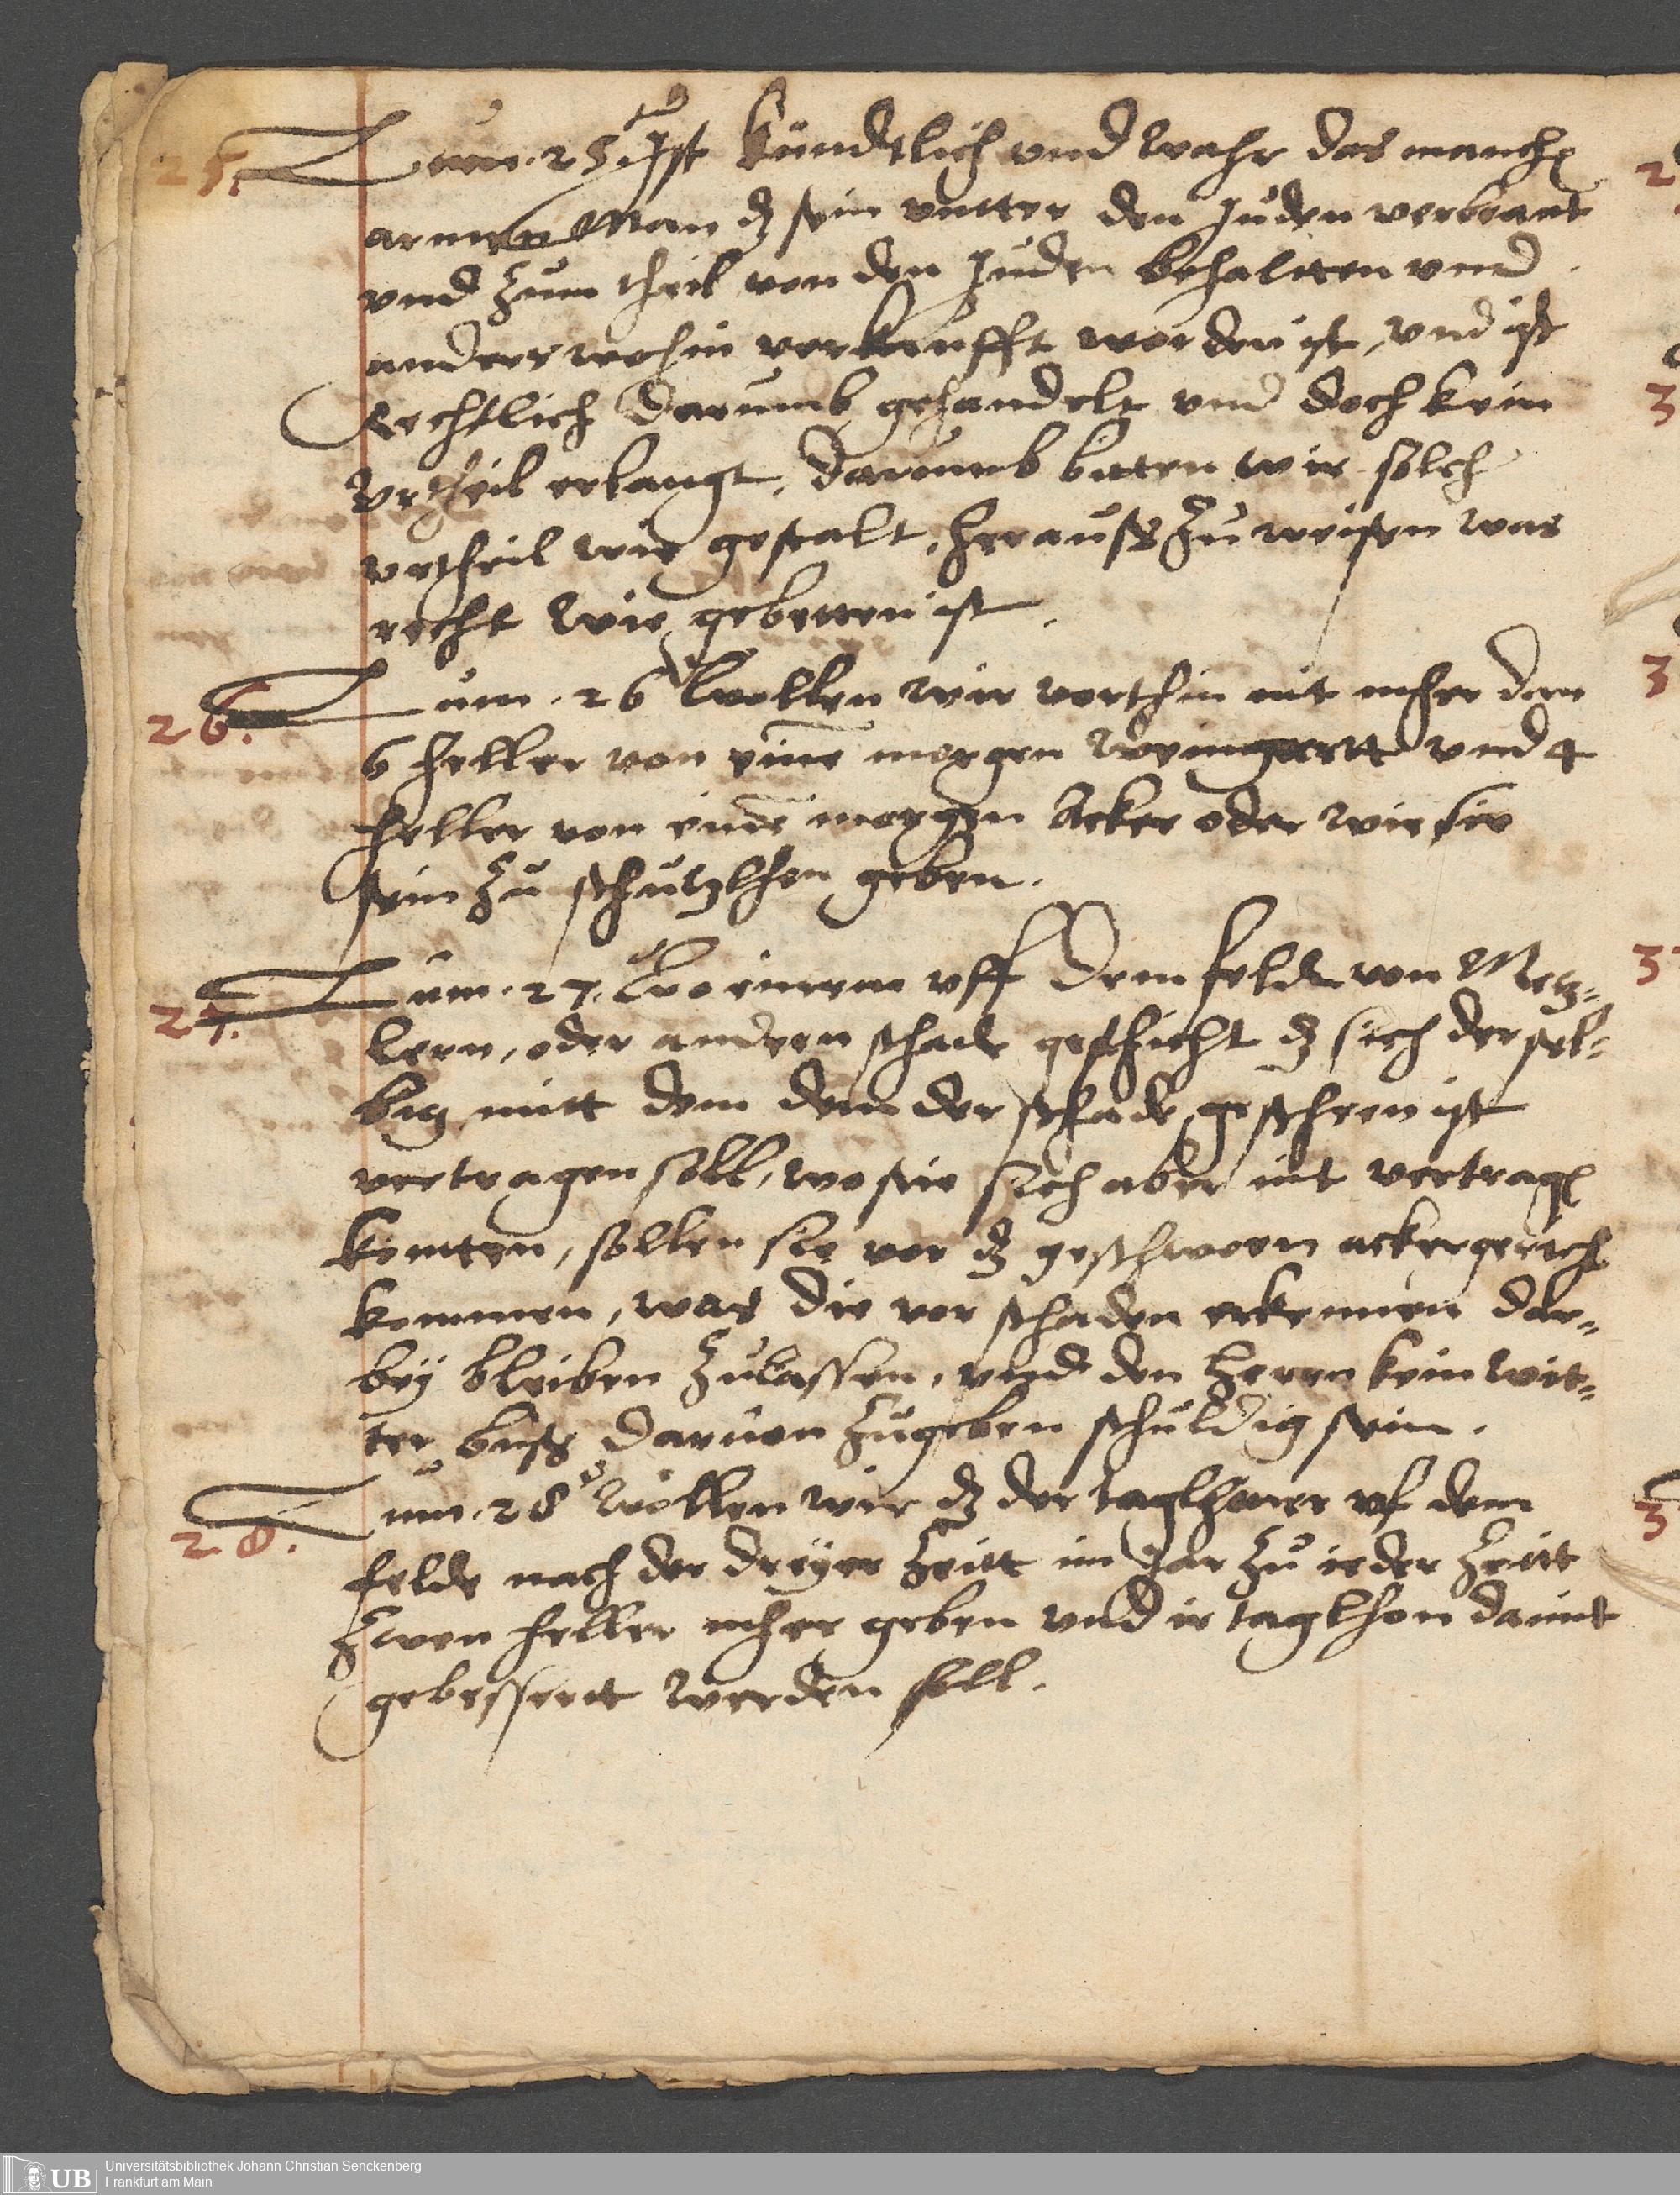 25. Zum .25. Ist kündtlich vnd wahr das manch
armen Man dz sein vntter den Juden verbrant
vnd zum theil von den Juden behaltten vnd
anderswohin verkaufft worden ist, vnd ist
rechtlich darumb gehandelt vnd doch kein
Vrtheil erlangt, darumb bitten wir solch
vrtheil wie gestalt, herauß zu weisen was
recht wie gebetten ist.
26. Zum .26 wollen wir vorthin nit mher dan
6 heller von eine morgen weingartt vnd 4
heller von eine morgen Acker oder wie sie
sein zu schützlhon geben.
27. Zum .27. Wo einem vff dem felde von Metz=
lern, oder andren schade geschicht dz sich der sel=
big mitt dem dem der schade geschehen ist
vertragen soll, wo sie sich aber nit vertrag
kontten, sollen sie vor dz geschworn ackergericht
kommen, was die vor schaden erkennen dar=
bey bleiben zulassen, vnd den Herrn kein wit=
ter buß daruon zugeben schuldig sein.
28. Zum .28 wöllen wir dz der taglhoner vf dem
felde nach der dreyer Zeitt im Jar zu ieder Zeitt
zwen heller mher geben vnd ir taglhon damit
gebessertt werden soll.
2
3
3
3
3
UB
Universitätsbibliothek Johann Christian Senckenberg
Frankfurt am Main